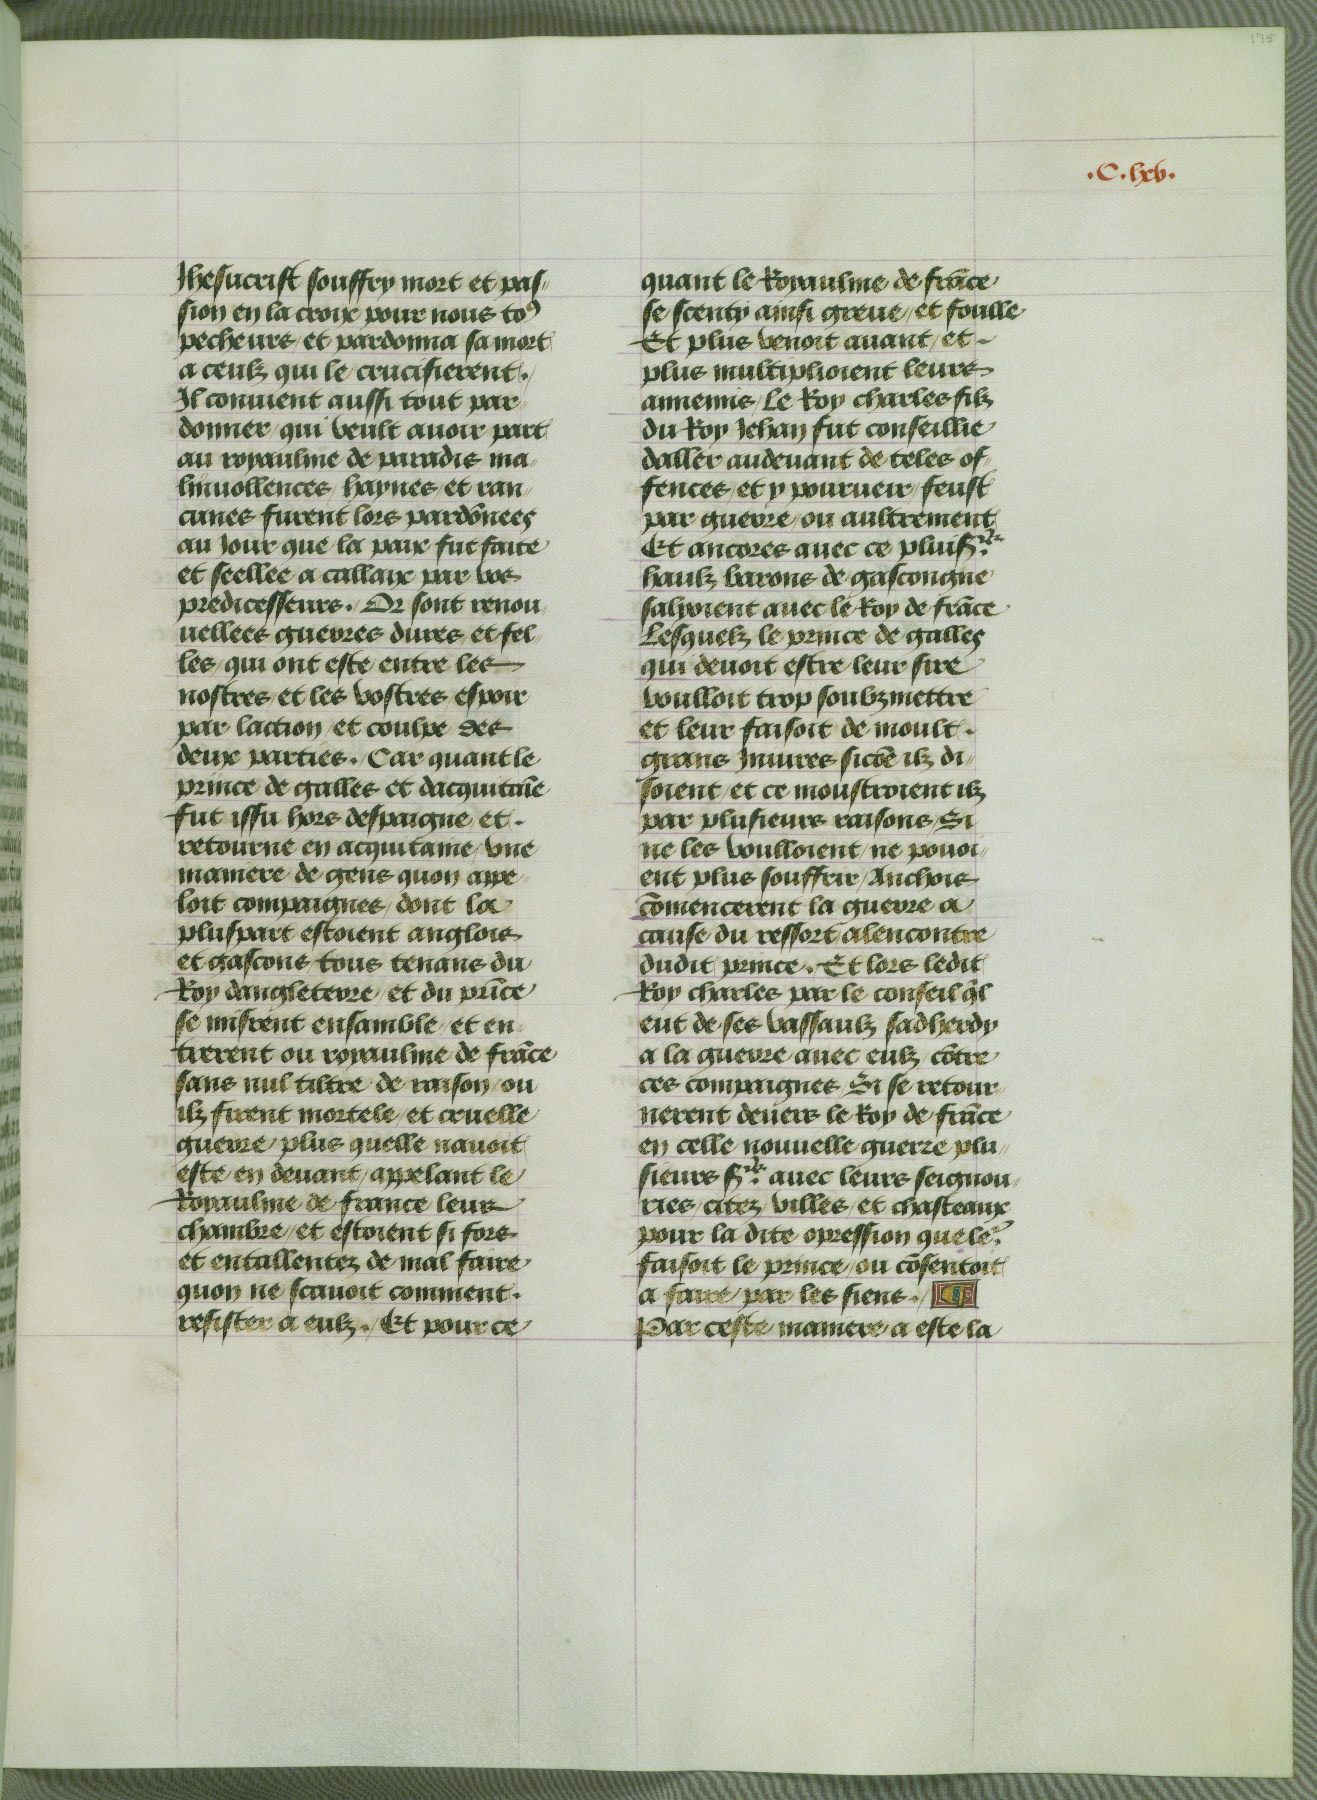 175
.C.lxv.
Jhesucrist souffry mort et pas-
sion en la croix pour nous toꝰ
pecheurs / et pardonna sa mort
a ceulz qui le crucifierent./
Il conuient aussi tout par-
donner / qui veult auoir part
au royaulme de paradis / ma-
liuuollences / haynes / et ran-
cunes furent lors pardōnees
au Jour que la paix fut faite
et seellee a callaix par vos
predicesseurs . Or sont renou-
uellees guerres dures et fel-
les / qui ont este entre les
nostres / et les vostres espoir
par laction / et coulpe des
deux parties . Car quant le
prince de galles et dacquitaīe
fut issu hors despaigne / et .
retourne en acquitaine / vne
maniere de gens quon appe-
loit compaignes / dont la
pluspart estoient anglois
et gascons / tous tenans du
Roy dangleterre / et du prīce
se misrent ensamble / et en-
trerent ou royaulme de frāce
sans nul tiltre de raison / ou
ilz firent mortele / et cruelle
guerre / plus quelle nauoit
este en deuant / appelant le
Royaulme de france leur
chambre / et estoient si fors
et entallentez de mal faire
quon ne scauoit comment .
resister a eulz ./ Et pour ce
quant le Royaulme de frāce
se scenty ainsi greue / et foulle
Et plus venoit auant / et .
plus multiplioient leurs
annemis / Le Roy charles filz
du Roy Jehan fut conseillie
daller audeuant de teles of-
fences / et y pourueir / feust
par guerre / ou aultrement
Et ancores auec ce pluisrs
haulz barons de gascongne
salyoient auec le Roy de frāce
Lesquelz le prince de galles
qui deuoit estre leur sire
voulloit trop soubzmettre
et leur faisoit de moult .
grans Iniures sicōe ilz di-
soient / et ce moustroient ilz
par plusieurs raisons / Si
ne les voulloient / ne pouoi-
ent plus souffrir / Anchois
cōmencerent la guerre a
cause du ressort / alencontre
dudit prince . Et lors ledit
Roy charles par le conseil ql̄
eut de ses vassaulz sadherdy
a la guerre auec eulz cōtre
ces compaignes / Si se retour-
nerent deuers le Roy de frāce
en celle nouuelle guerre plu-
sieurs srs auec leurs seignou-
ries / citez / villes / et chasteaux
pour la dite opression que leᷣ
faisoit le prince / ou cōsentoit
a faire / par les siens ./
Par ceste maniere a este la